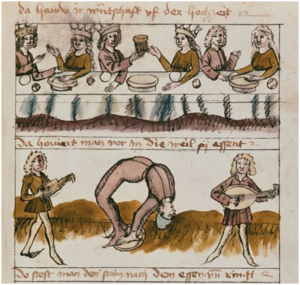 da haand ir wirtschafft vff der hochzeit
Da hoviert man vor in die weil sy essent
Do stost man den stain nach dem essen vn̄ ringt